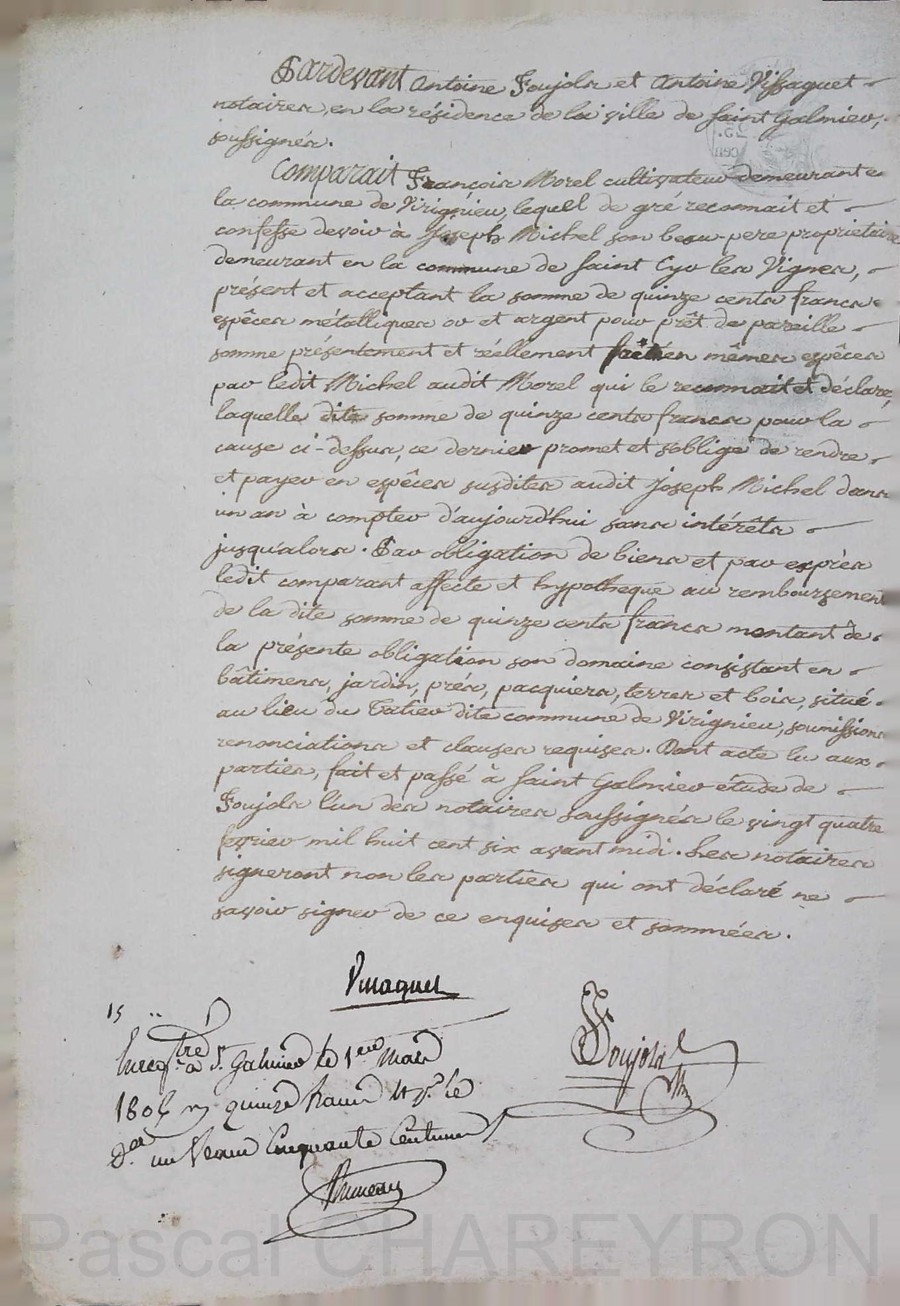 Pardevant Antoine Foujols et Antoine Vissaguet
notaires, en la résidence de la ville de Saint Galmier,
soussignés.
Comparait François Morel cultivateur demeurant en
la commune de Virignieu, lequel de gré reconnait et
confesse devoir à Joseph Michel son beau-pere propriétaire
demeurant en la commune de Saint Cyr les Vignes,
présent et acceptant la somme de quinze cents francs
espêces métalliques or et argent pour prêt de pareille
somme présentement et réellement fait en mêmes espêces
par ledit Michel audit Morel qui le reconnait et déclare,
laquelle dite somme de quinze cents francs pour la
cause ci-dessus, ce dernier promet et s'oblige de rendre
et payer en espêces susdites audit Joseph Michel dans
un an à compter d'aujourd'hui sans intérêts
jusqu'alors. Par obligation de biens et par exprès
ledit comparant affecte et hypotheque au remboursement
de la dite somme de quinze cents francs montant de
la présente obligation son domaine consistant en
bâtimens, jardin, prés, pacquiers, terres et bois, situé
au lieu du Tatier dite commune de Virignieu, soumissions
renonciations et clauses requises. Dont acte lu aux
parties, fait et passé à Saint Galmier étude de
Foujols l'un des notaires soussignés le vingt quatre
fevrier mil huit cent six avant midi. Les notaires
signeront non les parties qui ont déclaré ne
savoir signer de ce enquises et sommées.
Vissaguet
15
Foujols
Enregtré à St Galmier le 1er Mars
1806 quinze le
un franc Cinquante Centimes
Pascal CHAREYRON